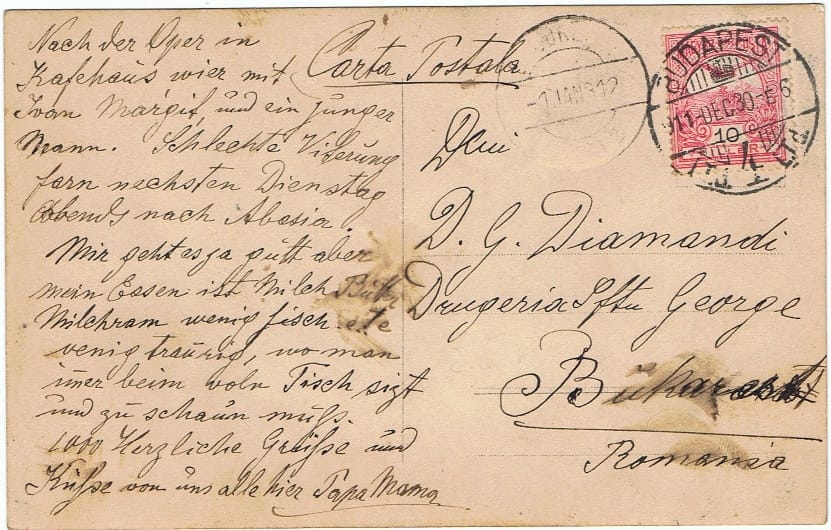 Nach der Oper in
Kafehaus wier mit
Ivan Margit, und ein junger
Mann. Schlechte
farn nechsten Dienstag
abends nach Abasia.
Mir geht es ja gutt aber
mein Essen ist Milch Buter
Milchram wenig fisch ete
venig traurig, wo man
imer beim voln Tisch sizt
und zu schaun muß.
1000 Herzliche Grüße und
Küße von uns alle hier Papa Mama
Carta Postala
-1 JAN 912
BUDAPEST
911-DEC 30-E6
10
D. G. Diamandi
Drugeria Sftu George
Bukarest
Romania